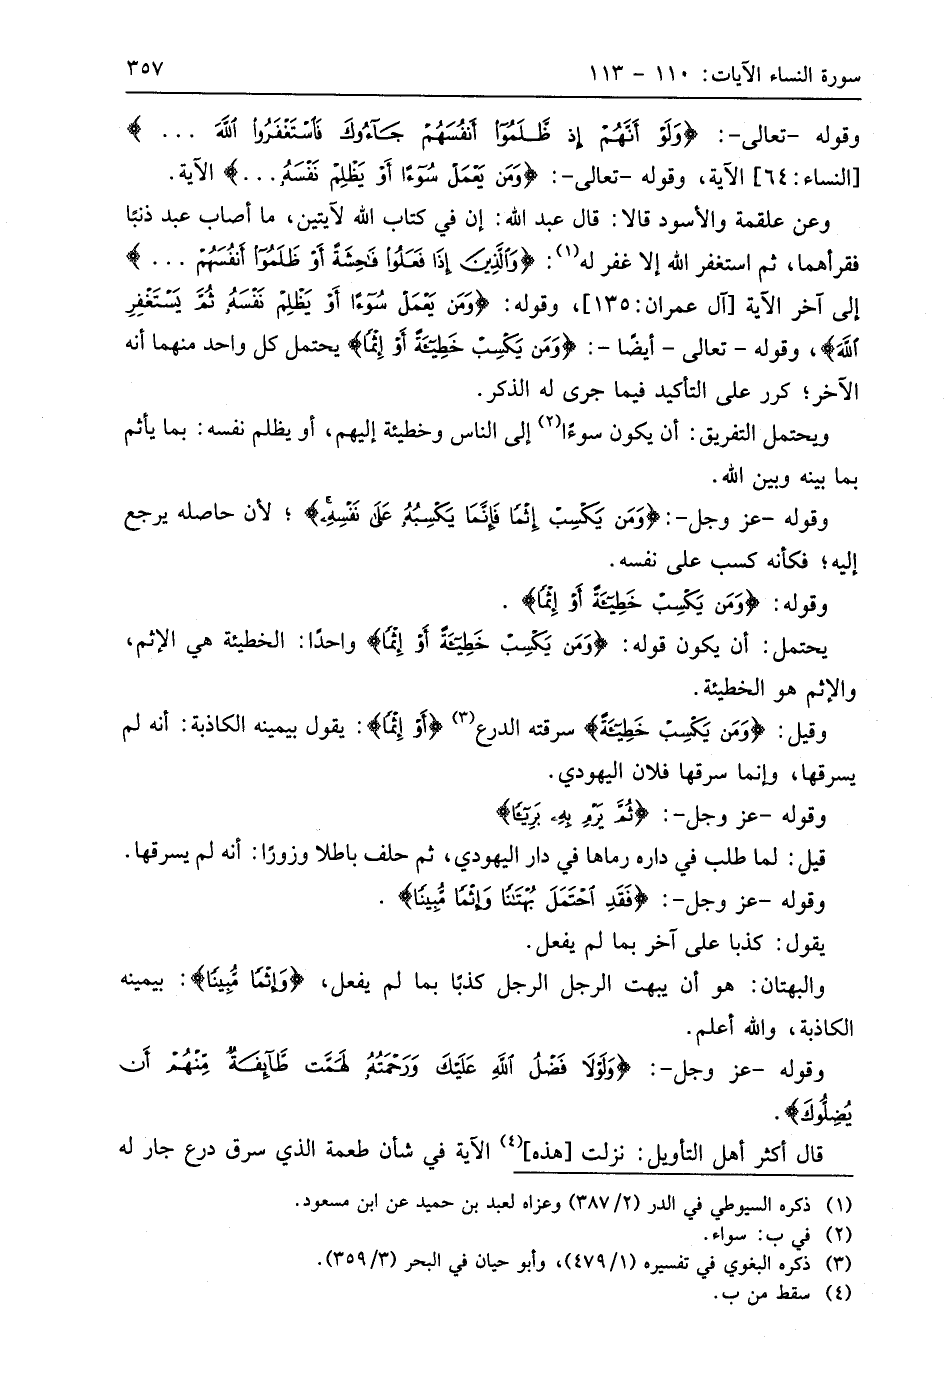 سورة النساء الآيات: ١١٠ - ١١٣ ٣٥٧
وقوله -تعالى-: ﴿وَلَوْ أَنَّهُمْ إِذ ظَّلَمُوٓا أَنفُسَهُمْ جَآءُوكَ فَٱسْتَغْفَرُوا ٱللَّهَ ... ﴾
[النساء:٦٤] الآية، وقوله -تعالى-: ﴿وَمَن يَعْمَلْ سُوٓءًا أَوْ يَظْلِمْ نَفْسَهُۥ...﴾ الآية.
وعن علقمة والأسود قالا: قال عبد الله: إن في كتاب الله لآيتين، ما أصاب عبد ذنبًا
فقرأهما، ثم استغفر الله إلا غفر له(١): ﴿وَٱلَّذِينَ إِذَا فَعَلُوا فَٰحِشَةً أَوْ ظَلَمُوٓا أَنفُسَهُمْ ... ﴾
إلى آخر الآية [آل عمران:١٣٥]، وقوله: ﴿وَمَن يَعْمَلْ سُوٓءًا أَوْ يَظْلِمْ نَفْسَهُۥ ثُمَّ يَسْتَغْفِرِ
ٱللَّهَ﴾، وقوله - تعالى - أيضًا -: ﴿وَمَن يَكْسِبْ خَطِيٓـَٔةً أَوْ إِثْمًا﴾ يحتمل كل واحد منهما أنه
الآخر؛ كرر على التأكيد فيما جرى له الذكر.
ويحتمل التفريق: أن يكون سوءًا(٢) إلى الناس وخطيئة إليهم، أو يظلم نفسه: بما يأثم
بما بينه وبين الله.
وقوله -عز وجل-: ﴿وَمَن يَكْسِبْ إِثْمًا فَإِنَّمَا يَكْسِبُهُۥ عَلَىٰ نَفْسِهِۦۚ﴾ ؛ لأن حاصله يرجع
إليه؛ فكأنه كسب على نفسه.
وقوله: ﴿وَمَن يَكْسِبْ خَطِيٓـَٔةً أَوْ إِثْمًا﴾ .
يحتمل: أن يكون قوله: ﴿وَمَن يَكْسِبْ خَطِيٓـَٔةً أَوْ إِثْمًا﴾ واحدًا: الخطيئة هي الإثم،
والإثم هو الخطيئة.
وقيل: ﴿وَمَن يَكْسِبْ خَطِيٓـَٔةً﴾ سرقته الدرع(٣) ﴿أَوْ إِثْمًا﴾: يقول بيمينه الكاذبة: أنه لم
يسرقها، وإنما سرقها فلان اليهودي.
وقوله -عز وجل-: ﴿ثُمَّ يَرْمِ بِهِۦ بَرِيٓـًٔا﴾
قيل: لما طلب في داره رماها في دار اليهودي، ثم حلف باطلا وزورًا: أنه لم يسرقها.
وقوله -عز وجل-: ﴿فَقَدِ ٱحْتَمَلَ بُهْتَٰنًا وَإِثْمًا مُّبِينًا﴾ .
يقول: كذبا على آخر بما لم يفعل.
والبهتان: هو أن يبهت الرجل الرجل كذبًا بما لم يفعل، ﴿وَإِثْمًا مُّبِينًا﴾: بيمينه
الكاذبة، والله أعلم.
وقوله -عز وجل-: ﴿وَلَوْلَا فَضْلُ ٱللَّهِ عَلَيْكَ وَرَحْمَتُهُۥ لَهَمَّت طَّآئِفَةٌ مِّنْهُمْ أَن
يُضِلُّوكَ﴾.
قال أكثر أهل التأويل: نزلت [هذه](٤) الآية في شأن طعمة الذي سرق درع جار له
(١) ذكره السيوطي في الدر (٢/ ٣٨٧) وعزاه لعبد بن حميد عن ابن مسعود.
(٢) في ب: سواء.
(٣) ذكره البغوي في تفسيره (١/ ٤٧٩)، وأبو حيان في البحر (٣/ ٣٥٩).
(٤) سقط من ب.